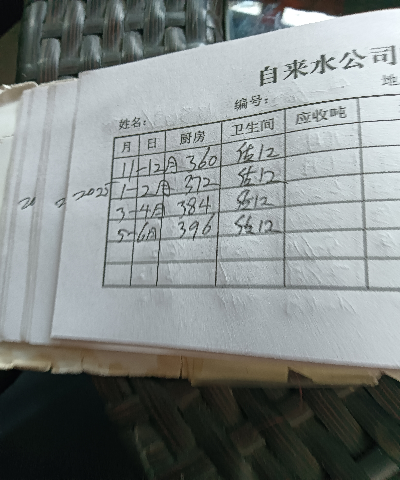 自来水公司
姓名: 编号: 地
月 日 厨房 卫生间 应收吨
11-12月 360 估12
2025 1-2月 372 估12
3-4月 384 估12
5-6月 396 估12